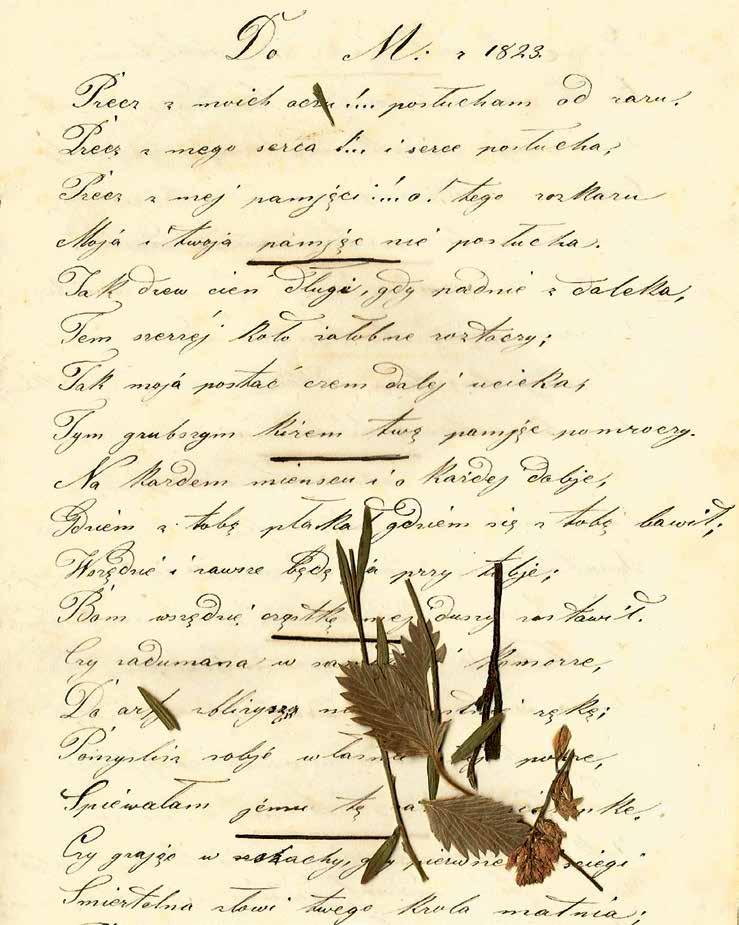 Do M: r 1823.
Précz z moich oczu!... posłucham od razu.
Précz z mego serca!... i serce posłucha,
Précz z mej pamjęci!... o! tego rozkazu
Moja i twoja pamjęc nié posłucha.
Jak drzew cień długi, gdy padnie z daleka,
Tem szerzéj koło żałobne roztoczy;
Tak moja postać czem daléj ucieka,
Tym grubszym kirem twą pamjęc pomroczy.
Na kardem miejscu i o każdej dobje,
Gdziem z tobą płaka gdziem się z tobą bawił;
Wszędzié i zawsze będę ja przy tobje;
Bom wszędzié cząstkę mej duszy zostawił.
Czy zadumana w komorze,
Do arfy zbliżysz rękę;
Pomyślisz sobje własni porze,
Śpiéwałam jému tę nkę.
Czy grając w szachy, gdy pierwsze ściegi
Smiertelna złowi twego krola matnia;